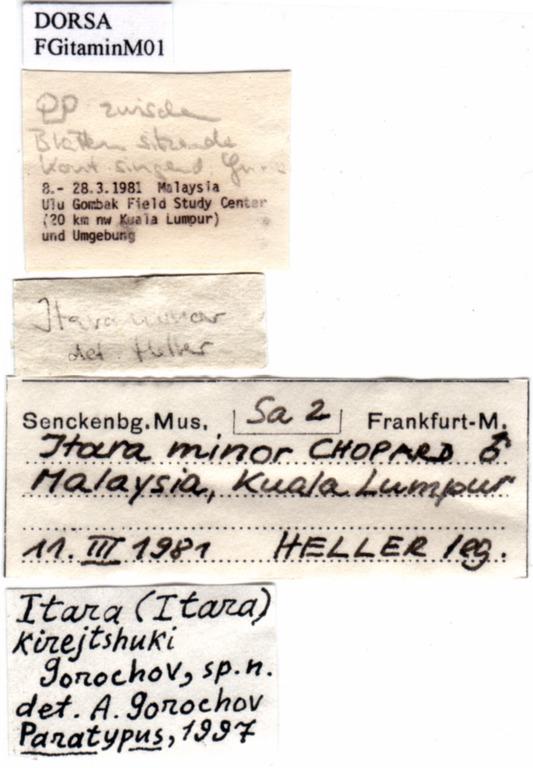 DORSA
FGitaminM01
zwischen
Blättern sitzende
singend
8.- 28.3.1981 Malaysia
Ulu Gombak Field Study Center
(20 km nw Kuala Lumpur)
und Umgebung
Itara minor
det. Heller
Senckenbg.Mus. Sa 2 Frankfurt-M.
Itara minor CHOPARD ♂
Malaysia, Kuala Lumpur
11. III 1981 HELLER leg.
Itara (Itara)
kirejtshuki
Gorochov, sp.n.
det. A. Gorochov
Paratypus, 1997